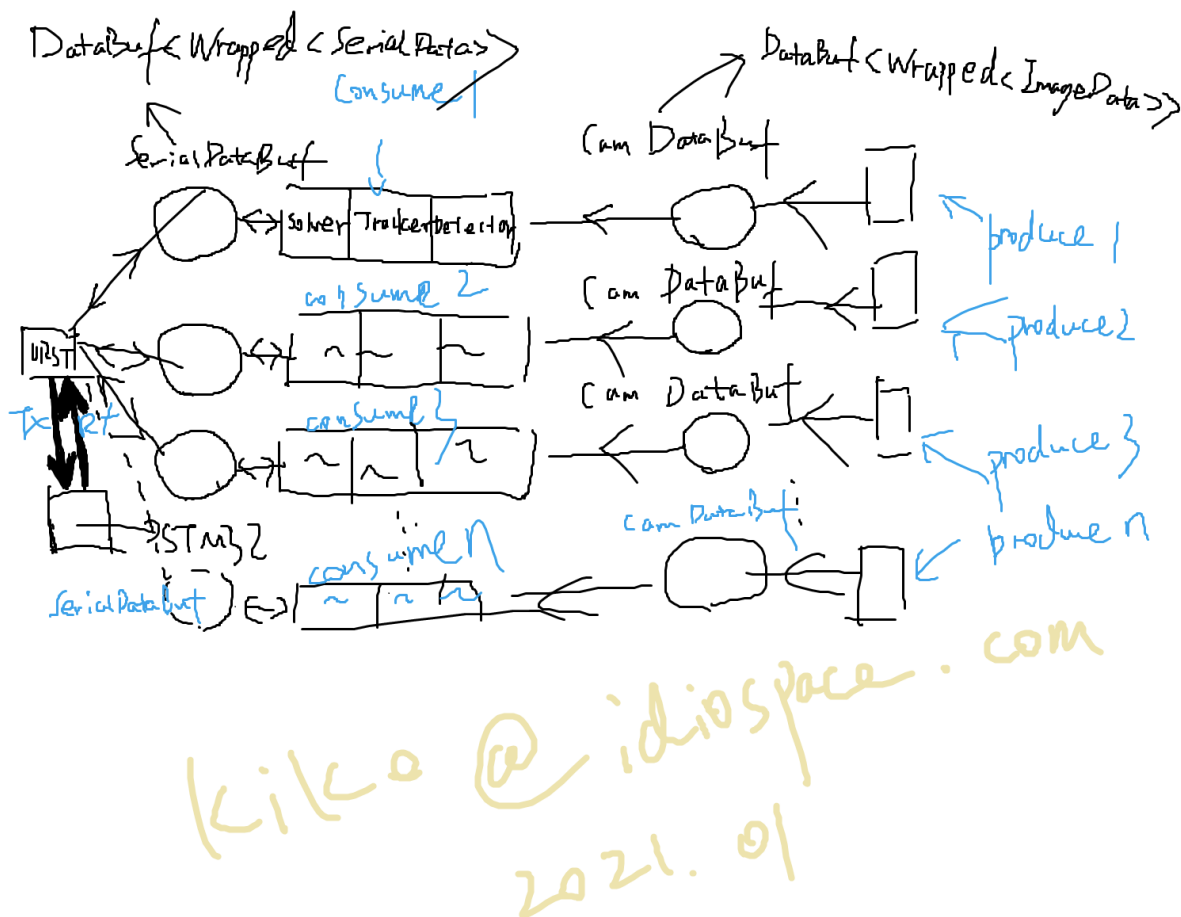 DataBuf<Wrapped<SerialData>>
DataBuf<Wrapped<ImageData>>
Consume 1
SerialDataBuf
Cam DataBuf
Solver Tracker Detector
produce 1
consume 2
Cam DataBuf
produce 2
~ ~ ~
Cam DataBuf
Tx
consume 3
produce 3
~ ~ ~
STM32
CamDataBuf
produce n
consume n
SerialDataBuf
~ ~ ~
kiko@idiospace.com
2021.01